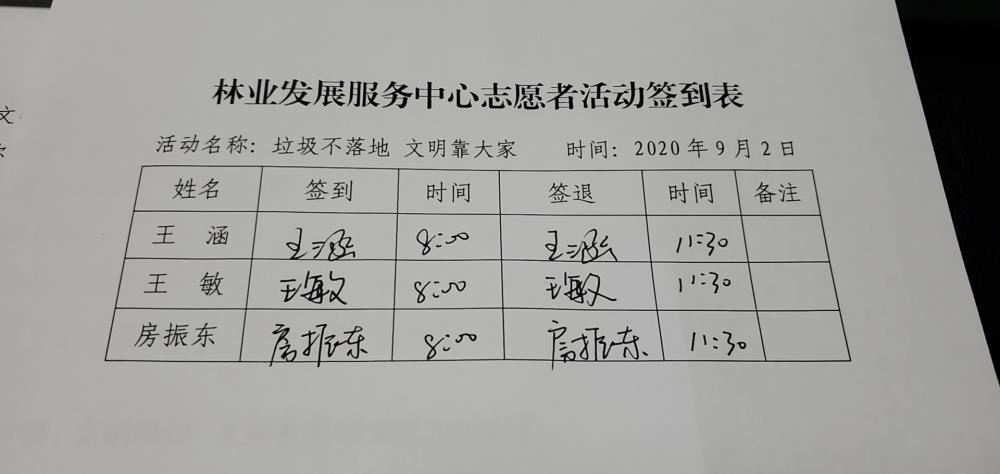 林业发展服务中心志愿者活动签到表
活动名称：垃圾不落地 文明靠大家 时间：2020年9月2日
姓名 签到 时间 签退 时间 备注
王 涵 王涵 8:00 王涵 11:30
王 敏 王敏 8:00 王敏 11:30
房振东 房振东 8:00 房振东 11:30
文